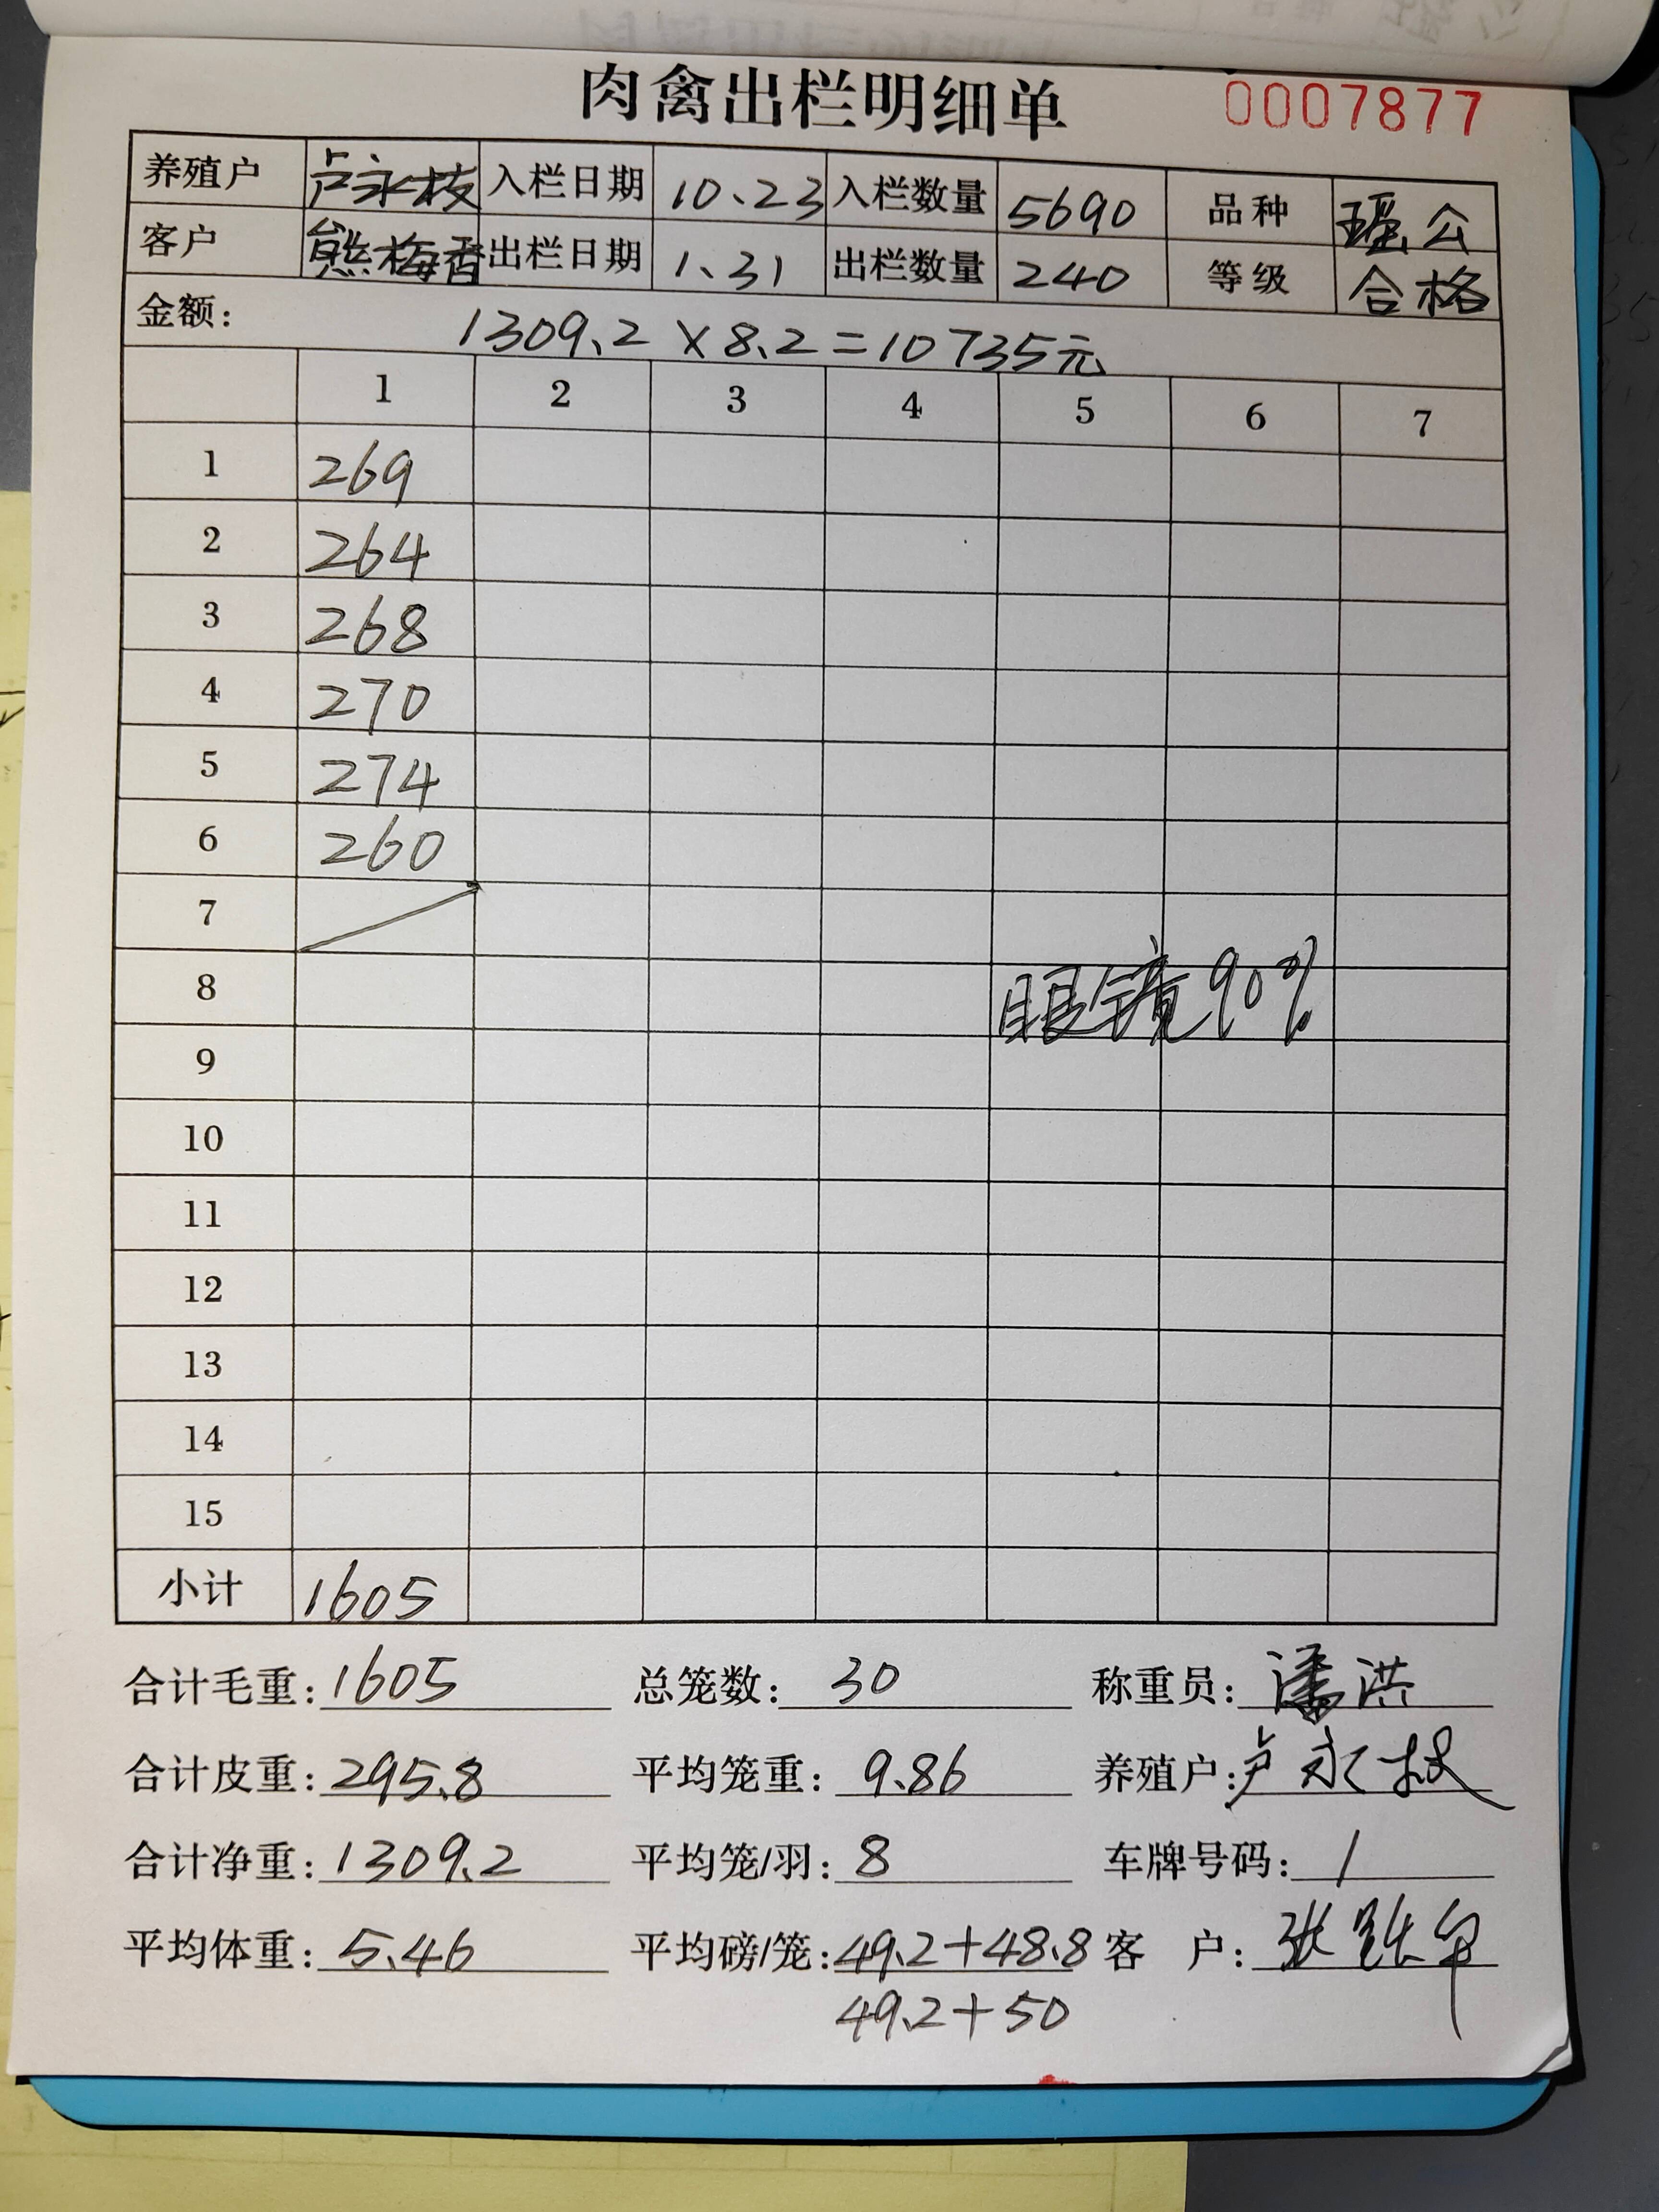 肉禽出栏明细单 0007877
养殖户 卢永枝 入栏日期 10、23 入栏数量 5690 品种 瑶公
客户 熊梅香 出栏日期 1、31 出栏数量 240 等级 合格
金额: 1309、2×8、2=10735元
1 2 3 4 5 6 7
1 269
2 264
3 268
4 270
5 274
6 260
7
8 眼镜90%
9
10
11
12
13
14
15
小计 1605
合计毛重: 1605 总笼数: 30 称重员: 潘洪
合计皮重: 295.8 平均笼重: 9.86 养殖户: 卢永枝
合计净重: 1309.2 平均笼/羽: 8 车牌号码:
平均体重: 5.46 平均磅/笼: 49.2+48.8 客 户: 张
49.2+50